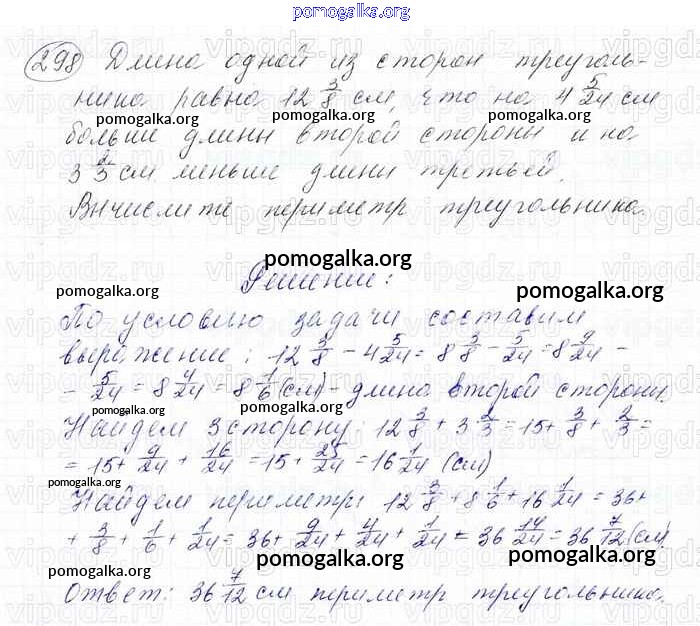 pomogalka.org
298 Длина одной из сторон треуголь-
ника равна 12 3/8 см, что на 4 5/24 см
pomogalka.org pomogalka.org pomogalka.org
больше длины второй стороны и на
3 2/3 см меньше длины третьей.
Вычислите периметр треугольника.
pomogalka.org
Решение:
pomogalka.org pomogalka.org
По условию задачи составим
выражение: 12 3/8 - 4 5/24 = 8 3/8 - 5/24 = 8 9/24 -
- 5/24 = 8 4/24 = 8 1/6 (см) - длина второй стороны.
pomogalka.org pomogalka.org pomogalka.org
Найдем 3 сторону: 12 3/8 + 3 2/3 = 15 + 3/8 + 2/3 =
= 15 + 9/24 + 16/24 = 15 + 25/24 = 16 1/24 (см)
pomogalka.org
Найдем периметр: 12 3/8 + 8 1/6 + 16 1/24 = 36 +
+ 3/8 + 1/6 + 1/24 = 36 + 9/24 + 4/24 + 1/24 = 36 14/24 = 36 7/12 (см)
pomogalka.org pomogalka.org pomogalka.org
Ответ: 36 7/12 см периметр треугольника.